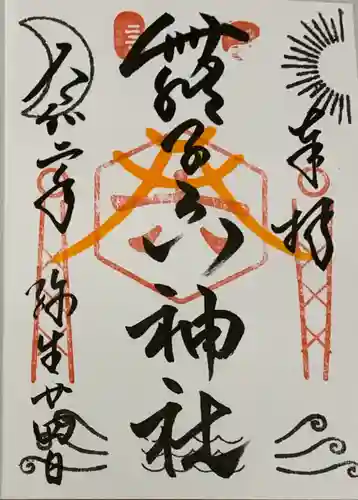 奉拝
舞子六神社
令和二年 弥生 廿四日